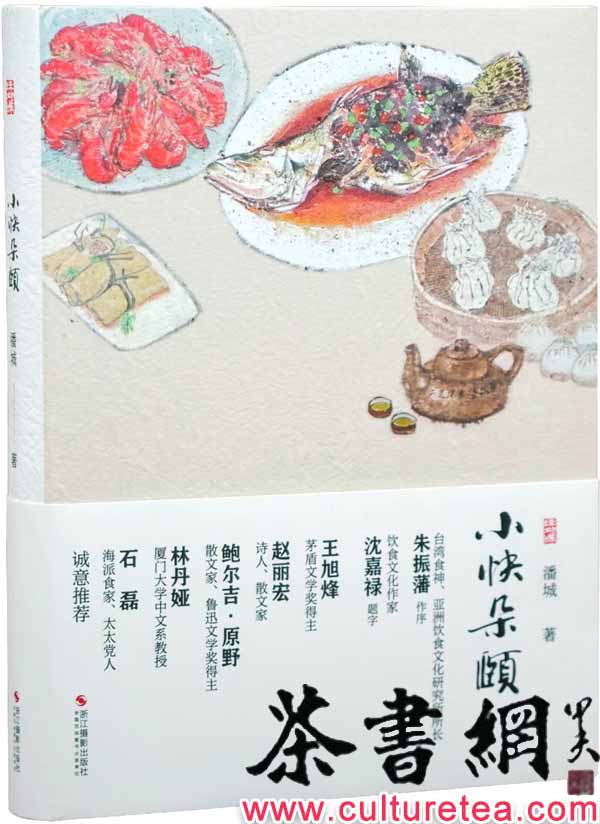 小快朵頤
潘城
著
小快朵頤
潘城 著
台湾食神、亚洲饮食文化研究所所长
朱振藩 作序
饮食文化作家
沈嘉禄 题字
王旭烽
茅盾文学奖得主
赵丽宏
诗人、散文家
鲍尔吉·原野
散文家、鲁迅文学奖得主
林丹娅
厦门大学中文系教授
石磊
海派食家、太太党人
诚意推荐
浙江摄影出版社
茶書網
www.culturetea.com